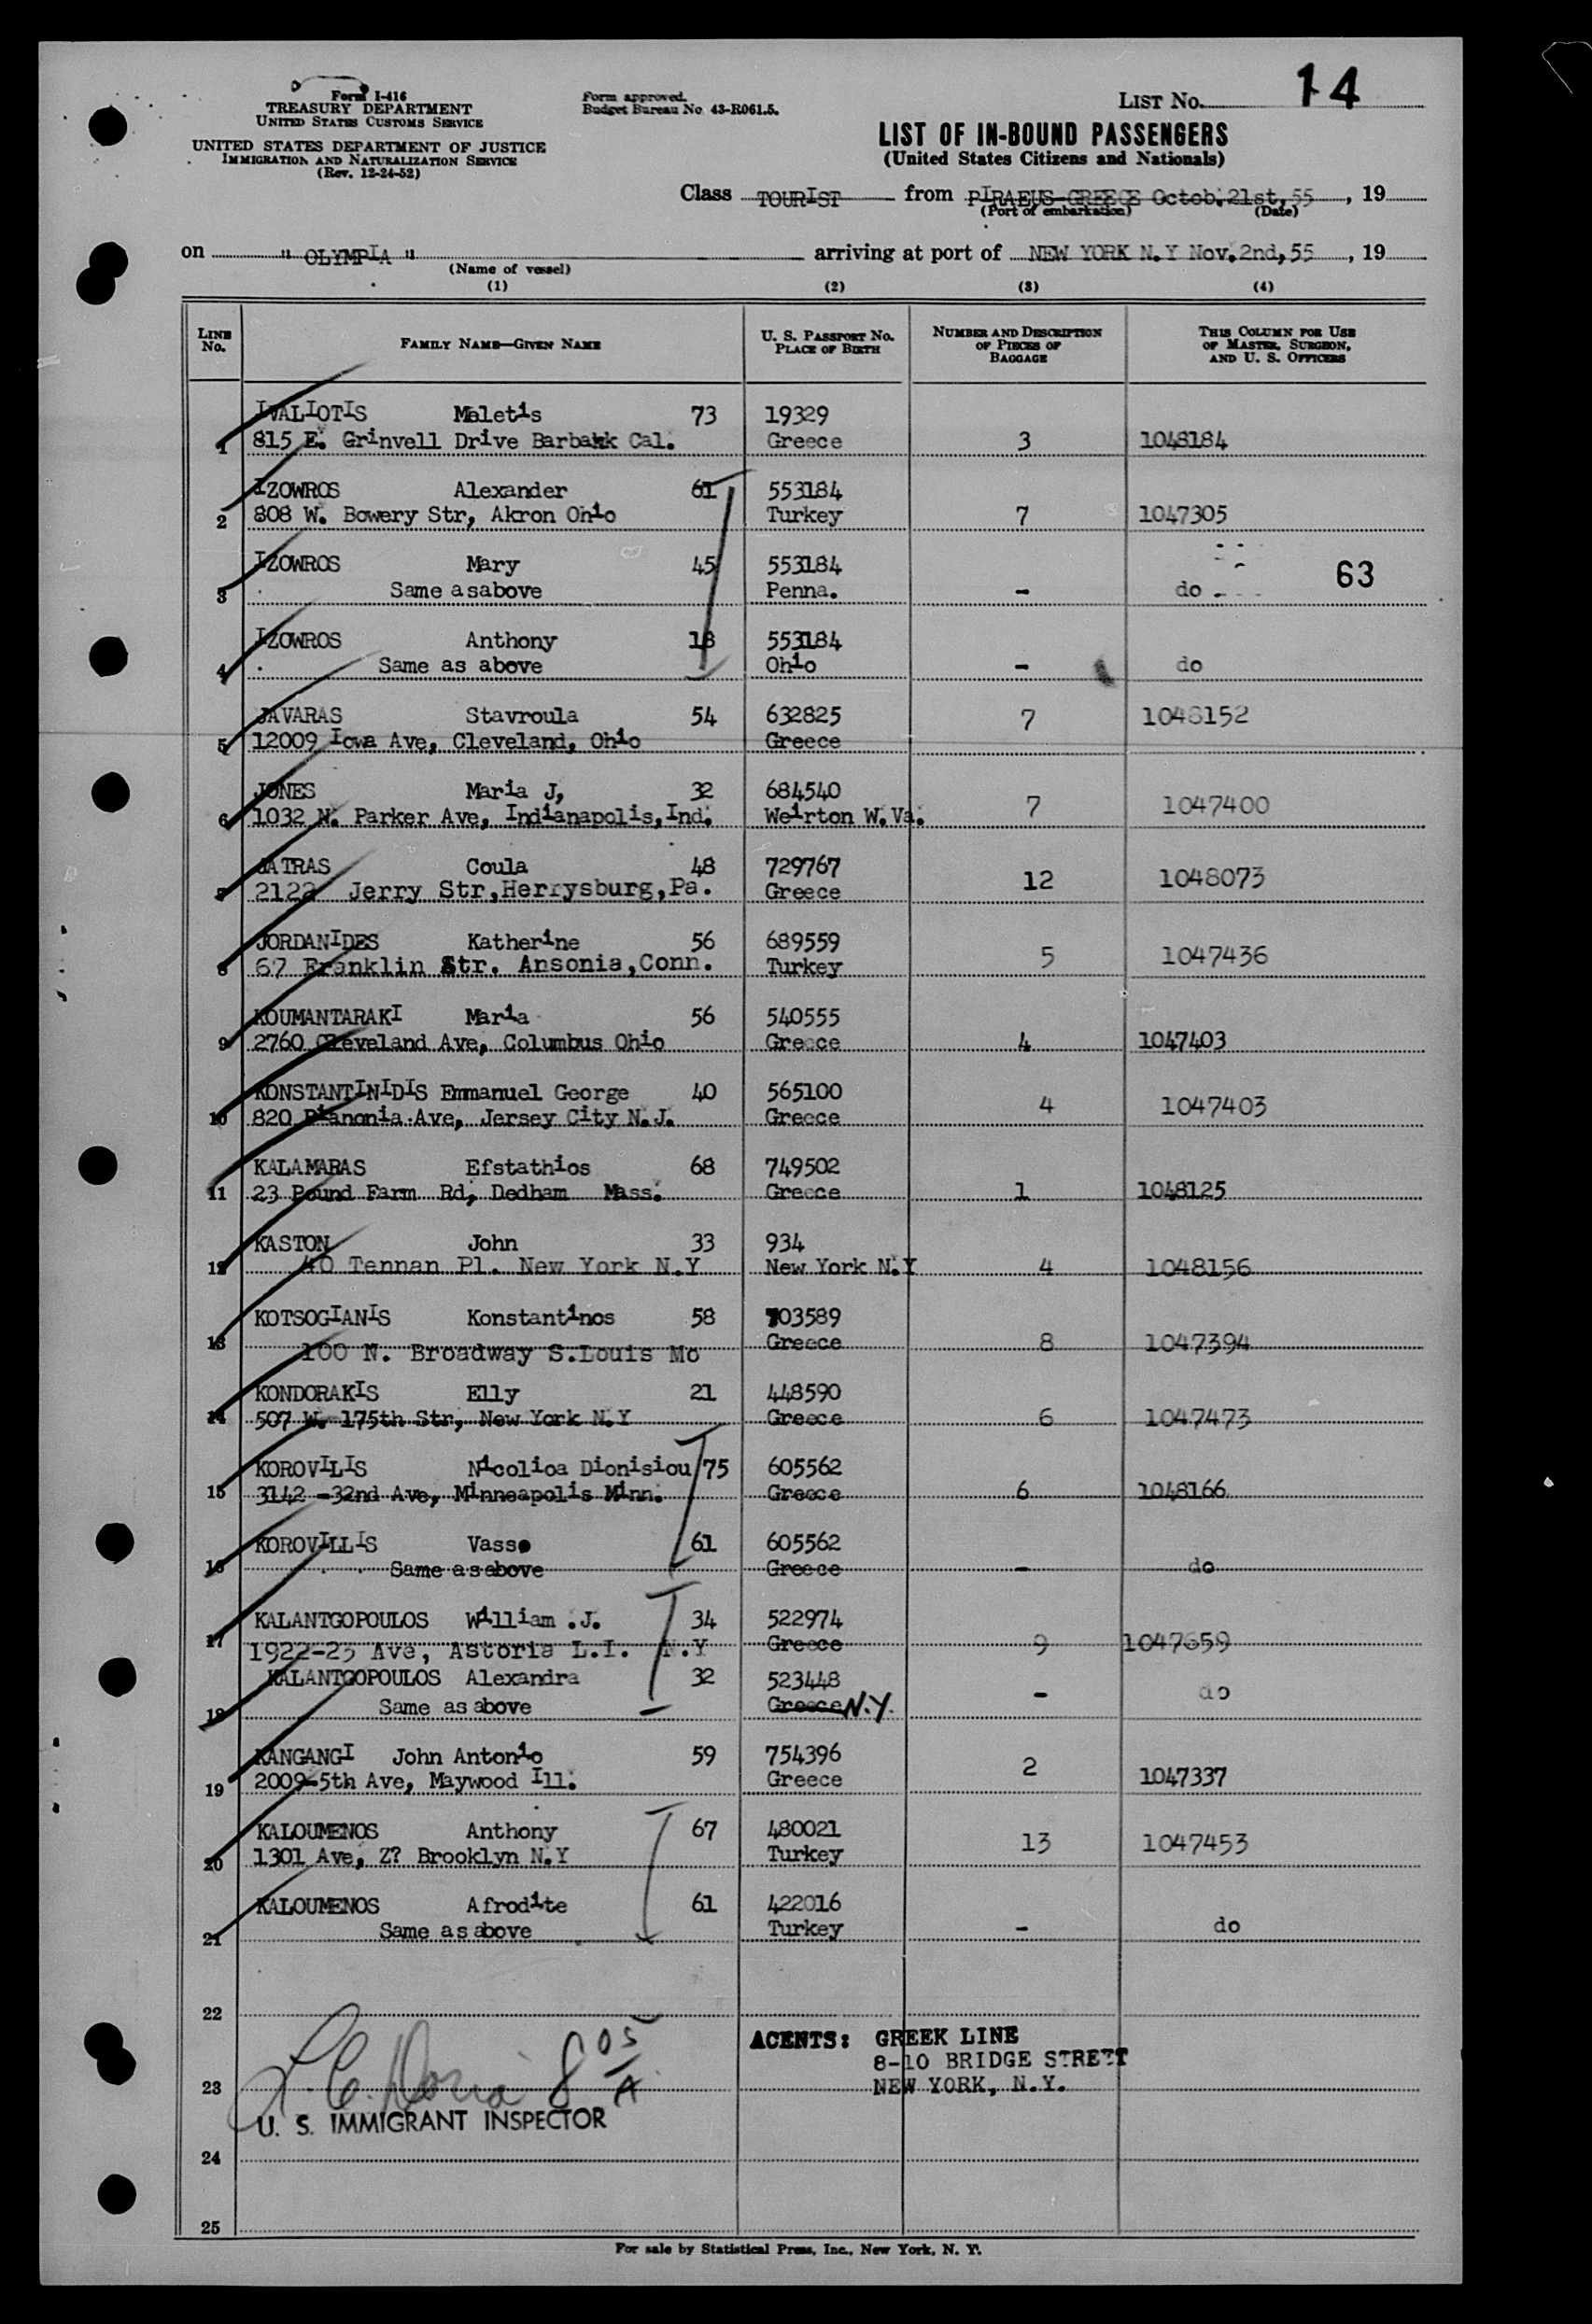 14
Form I-416
TREASURY DEPARTMENT
UNITED STATES CUSTOMS SERVICE
UNITED STATES DEPARTMENT OF JUSTICE
IMMIGRATION AND NATURALIZATION SERVICE
(Rev. 12-24-52)
Form approved.
Budget Bureau No. 43-R061.5.
LIST NO.
LIST OF IN-BOUND PASSENGERS
(United States Citizens and Nationals)
Class TOURIST from PIRAEUS GREECE Octob. 21st, 55, 19
(Port of embarkation) (Date)
on " OLYMPIA " arriving at port of NEW YORK N.Y Nov. 2nd, 55, 19
(Name of vessel)
(1) (2) (3) (4)
LINE NO. FAMILY NAME—GIVEN NAME U. S. PASSPORT NO. PLACE OF BIRTH NUMBER AND DESCRIPTION OF PIECES OF BAGGAGE THIS COLUMN FOR USE OF MASTER, SURGEON, AND U. S. OFFICERS
IVALIOTIS Meletis 73 19329
1 815 E. Grinvell Drive Barbakk Cal. Greece 3 1048184
IZOWROS Alexander 61 553184
2 808 W. Bowery Str, Akron Ohio Turkey 7 1047305
IZOWROS Mary 45 553184 63
3 Same as above Penna. - do
IZOWROS Anthony 18 553184
4 Same as above Ohio - do
JAVARAS Stavroula 54 632825 7 1048152
5 12009 Iowa Ave, Cleveland, Ohio Greece
JONES Maria J, 32 684540 7 1047400
6 1032 N. Parker Ave, Indianapolis, Ind. Weirton W.Va.
JATRAS Coula 48 729767 12 1048073
7 2122 Jerry Str, Herrysburg, Pa. Greece
JORDANIDES Katherine 56 689559 5 1047436
8 67 Franklin Str. Ansonia, Conn. Turkey
KOUMANTARAKI Maria 56 540555
9 2760 Cleveland Ave, Columbus Ohio Greece 4 1047403
KONSTANTINIDIS Emmanuel George 40 565100 4 1047403
10 820 Pianonia Ave, Jersey City N.J. Greece
KALAMARAS Efstathios 68 749502
11 23 Pound Farm Rd, Dedham Mass. Greece 1 1048125
KASTON John 33 934
12 40 Tennan Pl. New York N.Y New York N.Y 4 1048156
KOTSOGIANIS Konstantinos 58 703589
13 100 N. Broadway S.Louis Mo Greece 8 1047394
KONDORAKIS Elly 21 448590
14 507 W. 175th Str, New York N.Y Greece 6 1047473
KOROVILIS Nicolioa Dionisiou 75 605562
15 3142 -32nd Ave, Minneapolis Minn. Greece 6 1048166
KOROVILLIS Vasso 61 605562
16 Same as above Greece - do
KALANTGOPOULOS William .J. 34 522974
17 1922-23 Ave, Astoria L.I. N.Y Greece 9 1047659
KALANTGOPOULOS Alexandra 32 523448 - do
18 Same as above Greece N.Y.
KANGANGI John Antonio 59 754396 2
19 2009-5th Ave, Maywood Ill. Greece 1047337
KALOUMENOS Anthony 67 480021 13 1047453
20 1301 Ave, Z? Brooklyn N.Y Turkey
KALOUMENOS Afrodite 61 422016
21 Same as above Turkey - do
22
AGENTS: GREEK LINE
8-10 BRIDGE STREET
23 NEW YORK, N.Y.
8 05 A
U. S. IMMIGRANT INSPECTOR
24
25
For sale by Statistical Press, Inc., New York, N. Y.